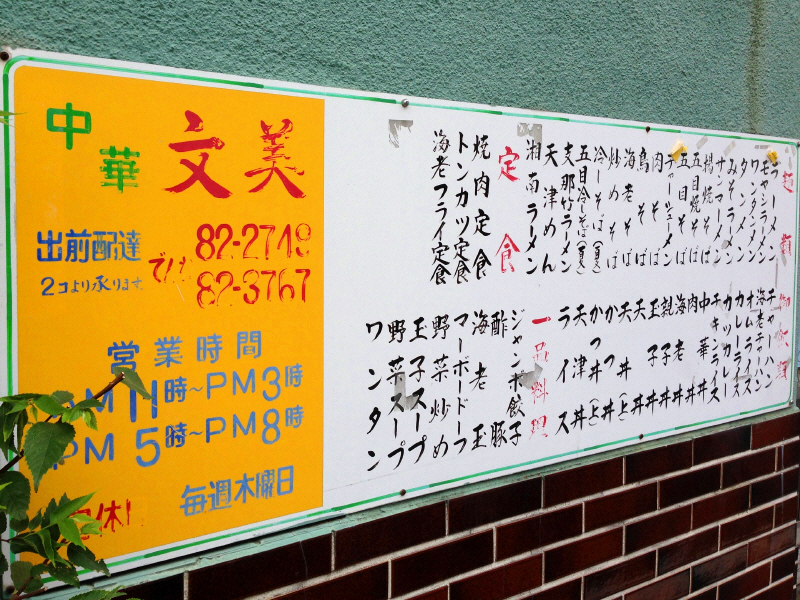 中華 文美
出前配達
2コより承ります
でんわ 82-2749
82-3767
営業時間
AM11時~PM3時
PM5時~PM8時
定休 毎週木曜日
麺類
ラーメン
モヤシラーメン
ワンタンメン
タンメン
みそラーメン
サンマーメン
揚焼そば
五目焼そば
五目そば
チャーシューメン
肉そば
鳥そば
海老そば
炒めそば
冷しそば(夏)
五目冷しそば(夏)
支那竹ラーメン
天津めん
湘南ラーメン
定食
焼肉定食
トンカツ定食
海老フライ定食
御飯類
チャーハン
海老チャーハン
オムライス
カレーライス
カツカレー
チキンライス
中華丼
肉丼
海老丼
親子丼
玉子丼
天丼
天丼(上)
かつ丼
かつ丼(上)
天津丼
ライス
一品料理
ジャンボ餃子
酢豚
海老玉
マーボードーフ
野菜炒め
玉子スープ
野菜スープ
ワンタン